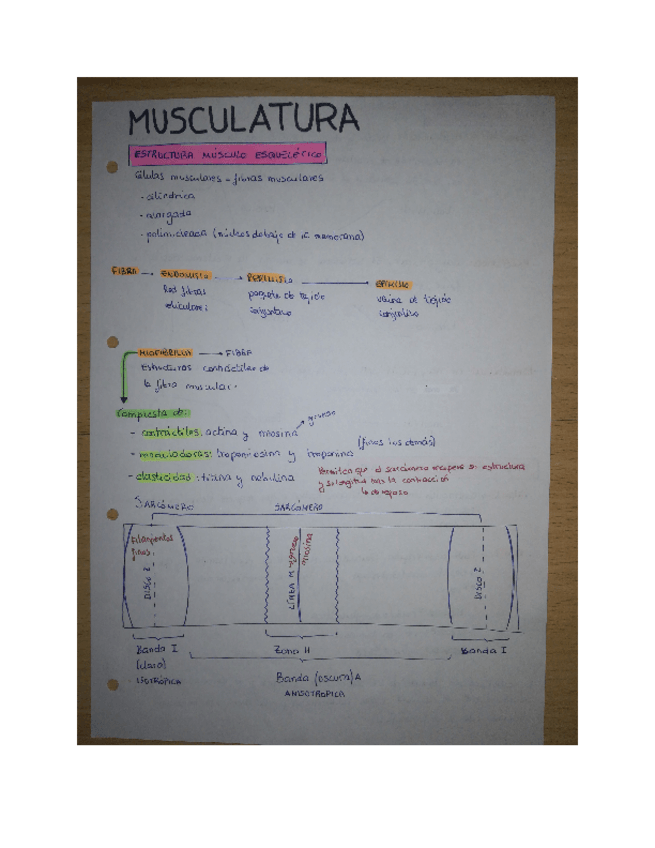 MUSCULATURA
ESTRUCTURA MÚSCULO ESQUELÉTICO
Células musculares = fibras musculares
- cilíndrica
- alargada
- polinucleada (núcleos debajo de la membrana)
FIBRA → ENDOMISIO → PERIMISIO → EPIMISIO
Red fibras
reticulares
paquete de tejido
conjuntivo
vaina de tejido
conjuntivo
MIOFIBRILLA → FIBRA
Estructuras contráctiles de
la fibra muscular.
Compuesta de:
- contráctiles: actina y miosina → grueso
- reguladoras: tropomiosina y troponina (finos los demás)
- elasticidad: titina y nebulina
Permiten que el sarcómero recupere su estructura
y su longitud tras la contracción
↳ de reposo
SARCÓMERO
SARCÓMERO
Filamentos
finos.
DISCO Z
LÍNEA M
grueso
miosina
DISCO Z
Banda I
(clara)
ISOTRÓPICA
Zona H
Banda I
Banda (oscura) A
ANISOTRÓPICA